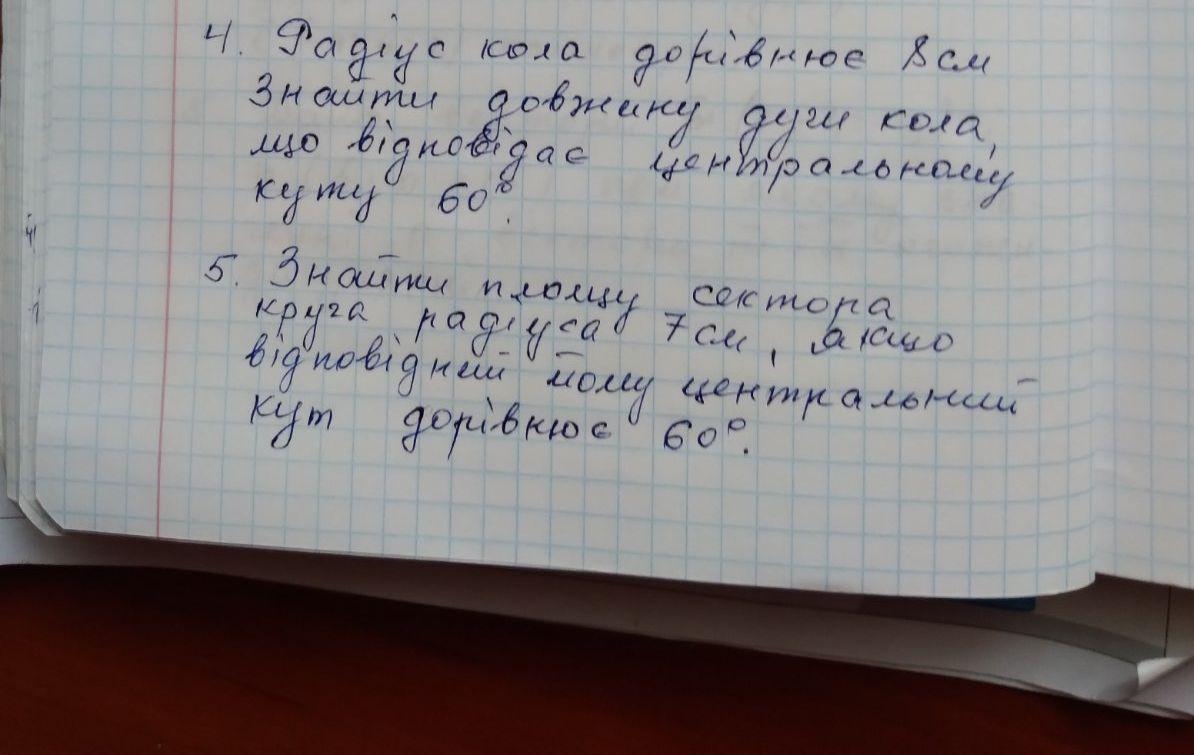 4. Радіус кола дорівнює 8 см
Знайти довжину дуги кола,
що відповідає центральному
куту 60°.
5. Знайти площу сектора
круга радіуса 7 см, якщо
відповідний йому центральний
кут дорівнює 60°.